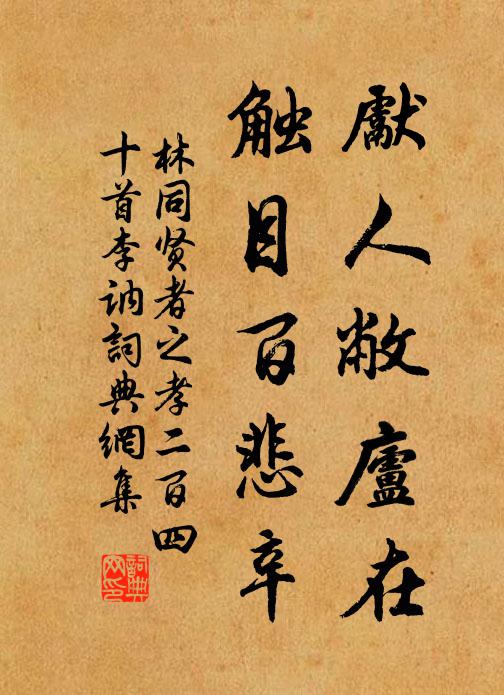 獻人敝廬在
触目百悲辛
林同贤者之孝二百四
十首李讷詞典網集
詞典
网印